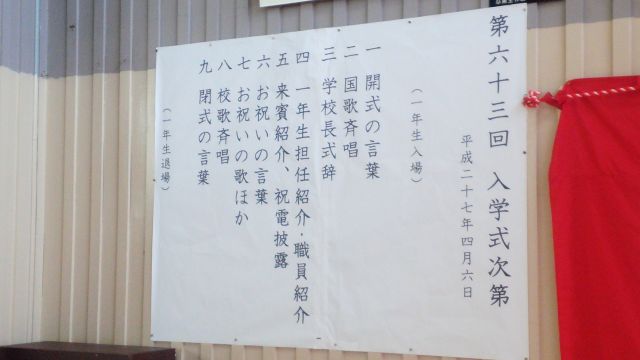 第六十三回 入学式次第
平成二十七年四月六日
（一年生入場）
一 開式の言葉
二 国歌斉唱
三 学校長式辞
四 一年生担任紹介・職員紹介
五 来賓紹介、祝電披露
六 お祝いの言葉
七 お祝いの歌ほか
八 校歌斉唱
九 閉式の言葉
（一年生退場）